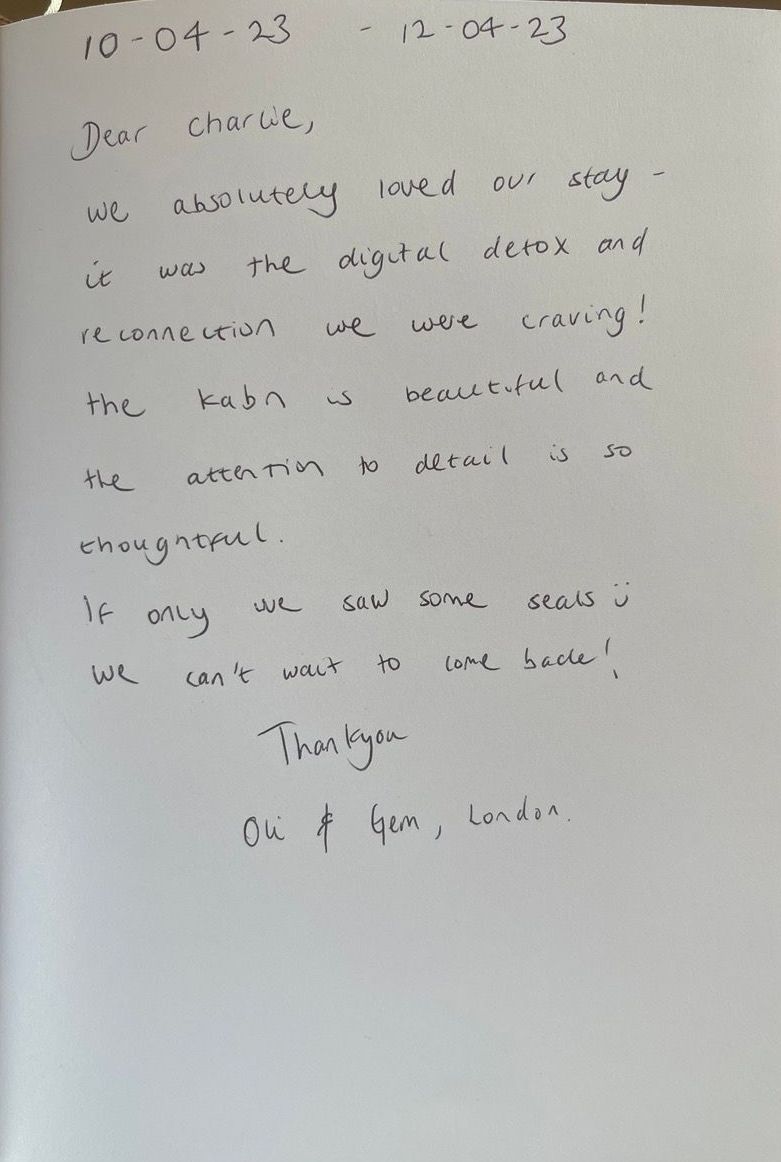 10-04-23 - 12-04-23
Dear Charlie,
we absolutely loved our stay -
it was the digital detox and
reconnection we were craving!
the kabn is beautiful and
the attention to detail is so
thoughtful.
If only we saw some seals ü
we can't wait to come back!
Thankyou
Oli & Gem, London.